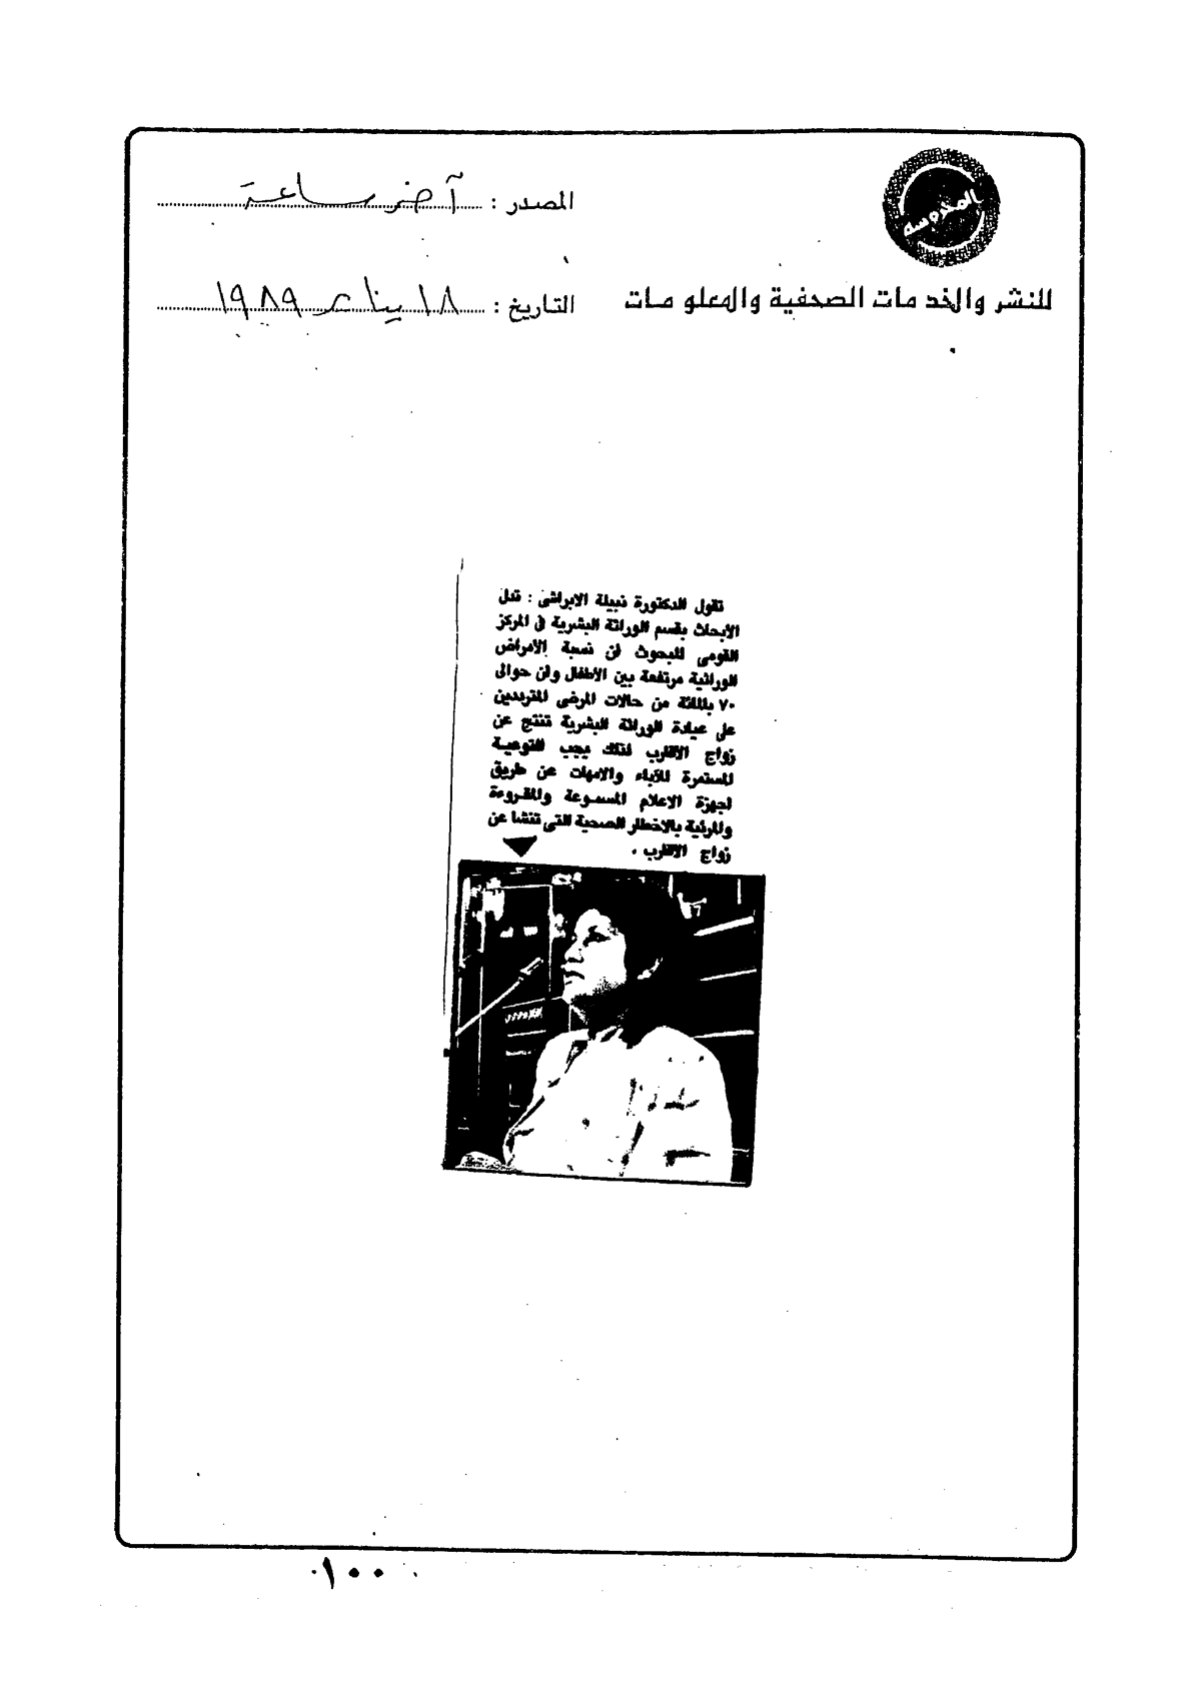 المحروسة
للنشر والخدمات الصحفية والمعلومات
المصدر : آخر ساعة
التاريخ : ١٨ يناير ١٩٨٩
تقول الدكتورة نبيلة الابراشى : تدل
الأبحاث بقسم الوراثة البشرية فى المركز
القومى للبحوث ان نسبة الأمراض
الوراثية مرتفعة بين الأطفال وان حوالى
٧٠ بالمائة من حالات المرضى المترددين
على عيادة الوراثة البشرية تنتج عن
زواج الاقارب لذلك يجب التوعية
المستمرة للآباء والامهات عن طريق
اجهزة الاعلام المسموعة والمقروءة
والمرئية بالاخطار الصحية التى تنشا عن
زواج الاقارب .
١٠٠